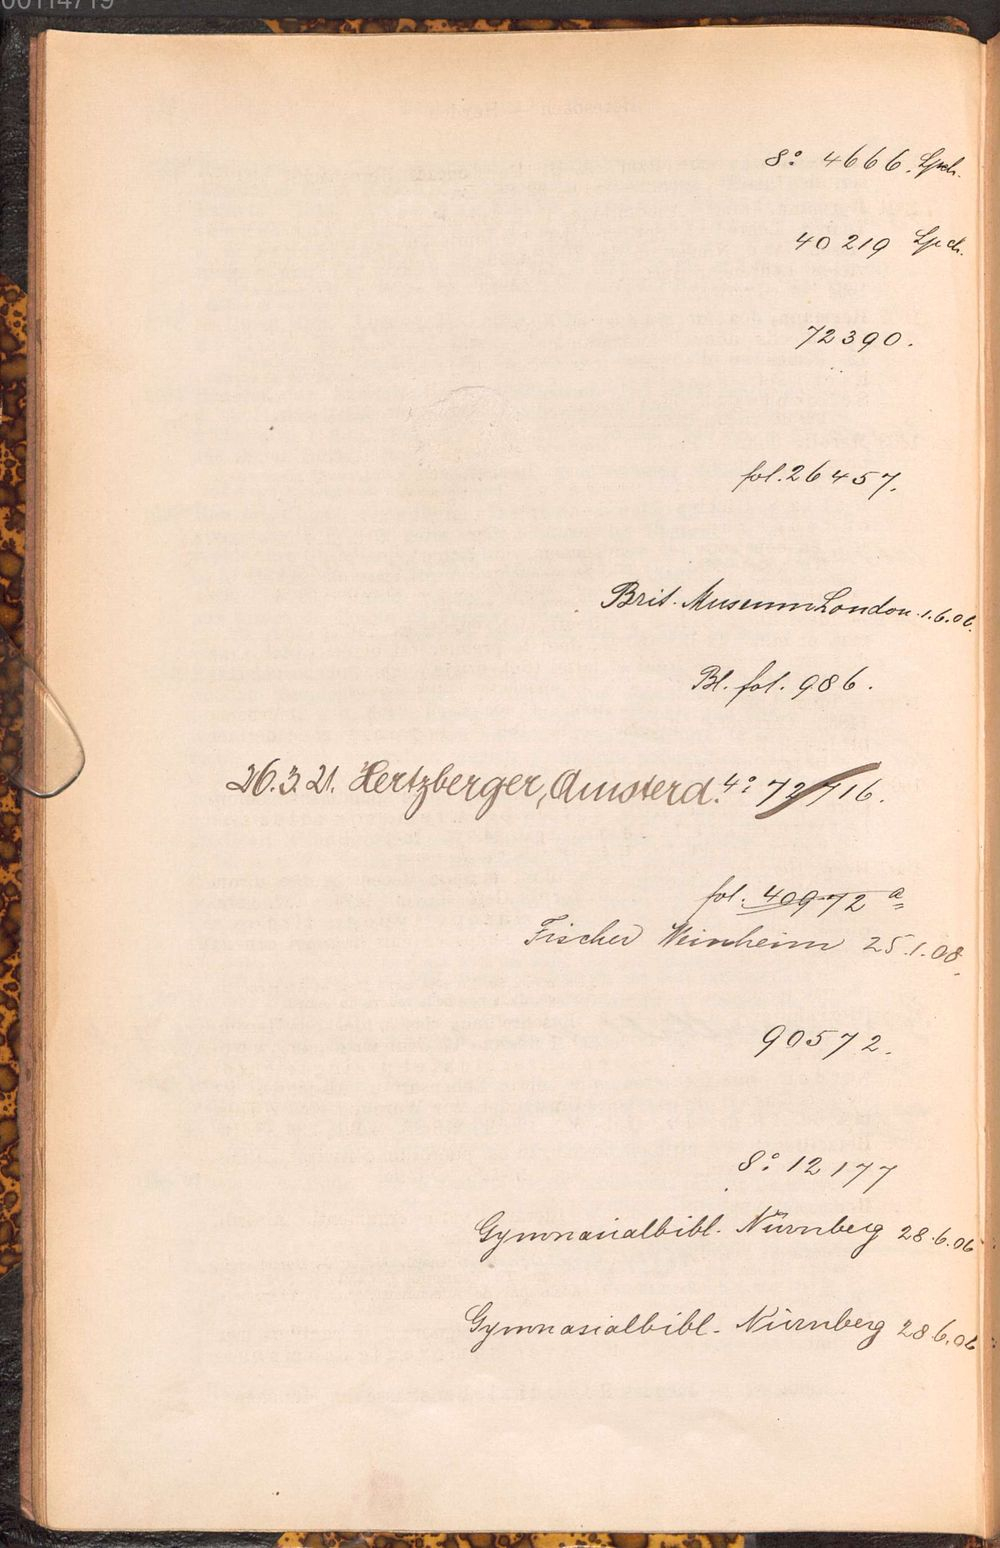 00114719
8° 4666. Lpch.
40 219 Lpch.
72390.
fol. 26457.
Brit. Museum London 1.6.06.
Bl. fol. 986.
26.3.21. Hertzberger, Amsterd. 4° 72716.
fol. 40972 a
Fischer Weinheim 25.1.08.
90572.
8° 12177
Gymnasialbibl. Nürnberg 28.6.06
Gymnasialbibl. Nürnberg 28.6.06